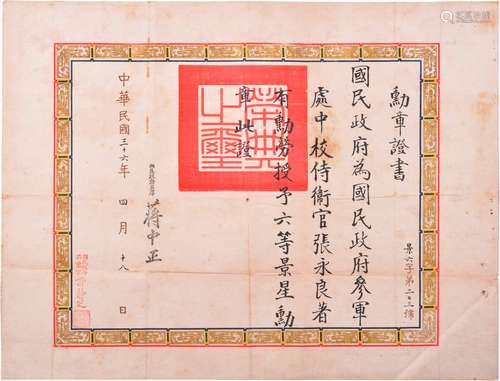 勳章證書
景六字第
號
國民政府為國民政府參軍
處中校侍衛官張永良著
有勳勞授予六等景星勳
章此證
榮典
之璽
國民政府主席
蔣中正
中華民國三十六年 四月 十八日